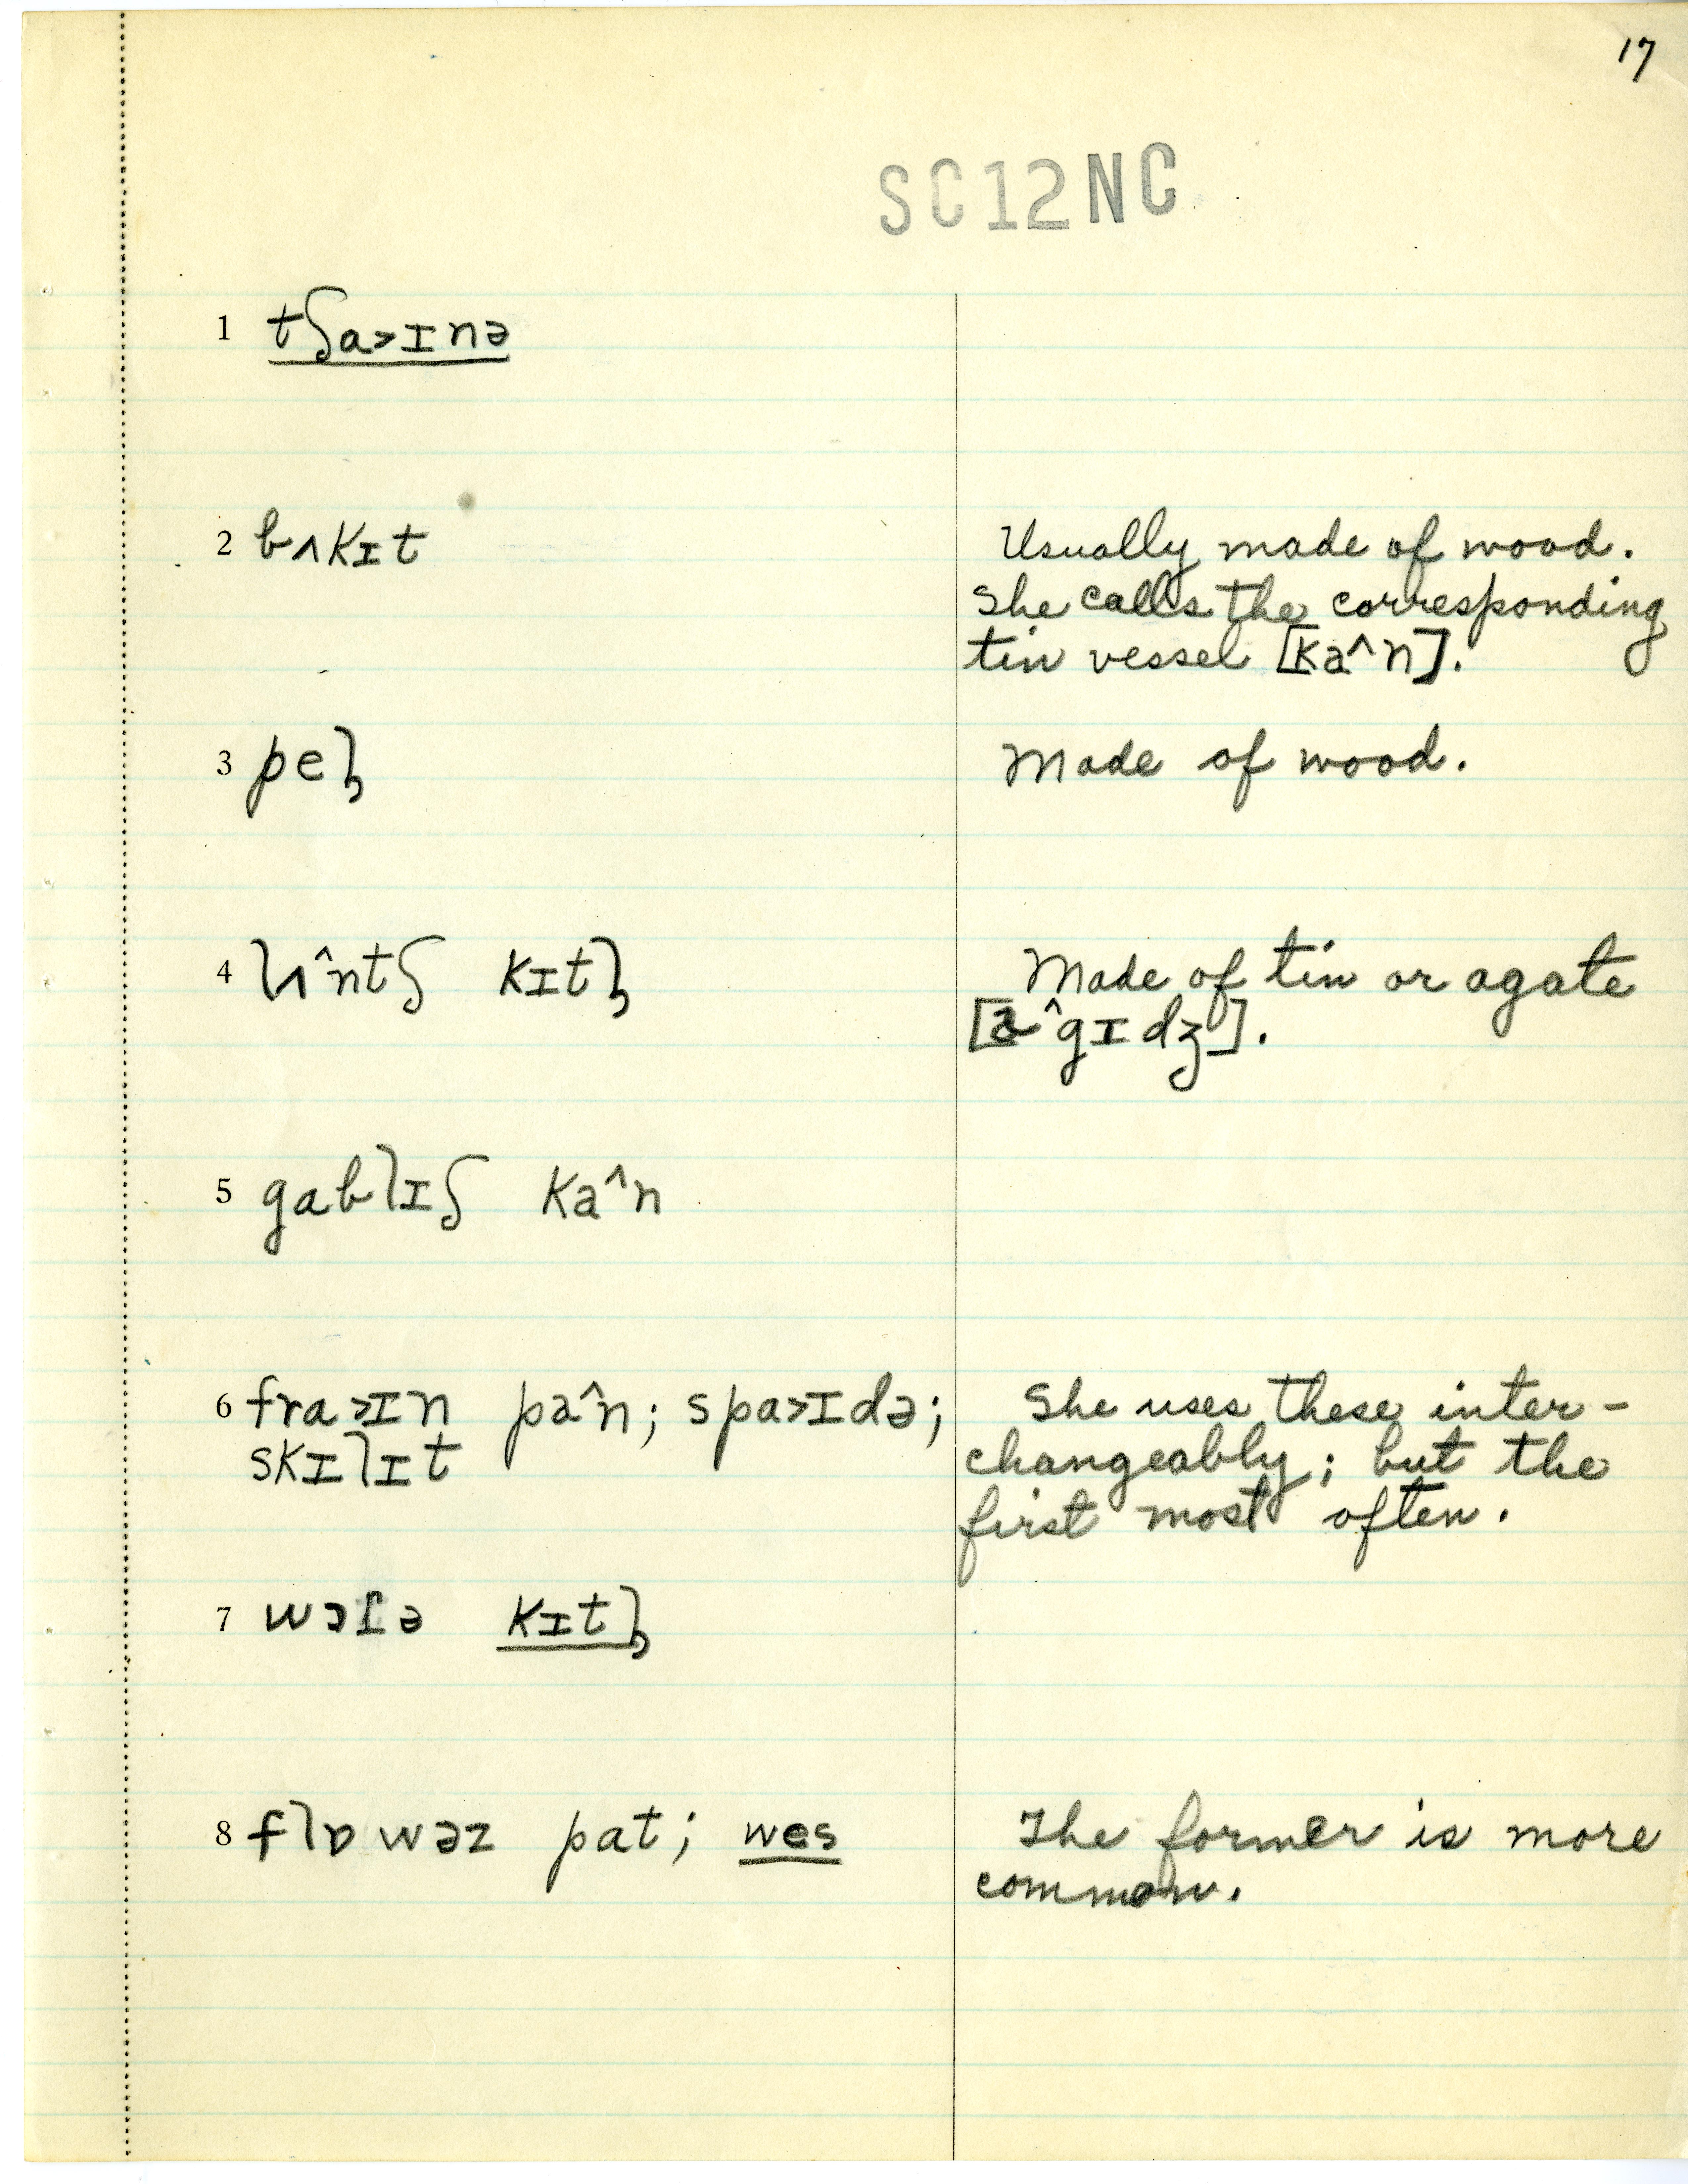 17
SC12NC
1 tʃa>ɪnə
2 bʌkɪt
Usually made of wood.
She calls the corresponding
tin vessel [ka^n].
3 peɭ
Made of wood.
4 lʌ^ntʃ kɪtɭ
Made of tin or agate
[a^gɪdʒ].
5 gablɪʃ ka^n
6 fra>ɪn pa^n; spa>ɪdə;
skɪlɪt
She uses these inter-
changeably; but the
first most often.
7 wɔʃə kɪtɭ
8 flɒwəz pat; wes
The former is more
common.